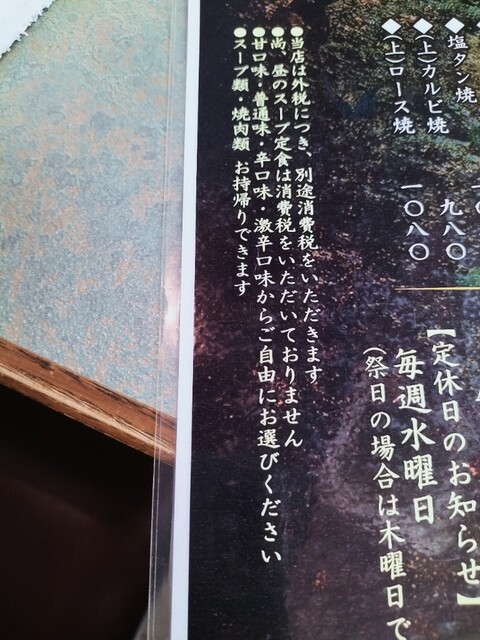 ◆塩タン焼
◆(上)カルビ焼 九八〇
◆(上)ロース焼 一〇八〇
【定休日のお知らせ】
毎週水曜日
(祭日の場合は木曜日で
●当店は外税につき、別途消費税をいただきます
●尚、昼のスープ定食は消費税をいただいておりません
●甘口味・普通味・辛口味・激辛口味からご自由にお選びください
●スープ類・焼肉類 お持帰りできます